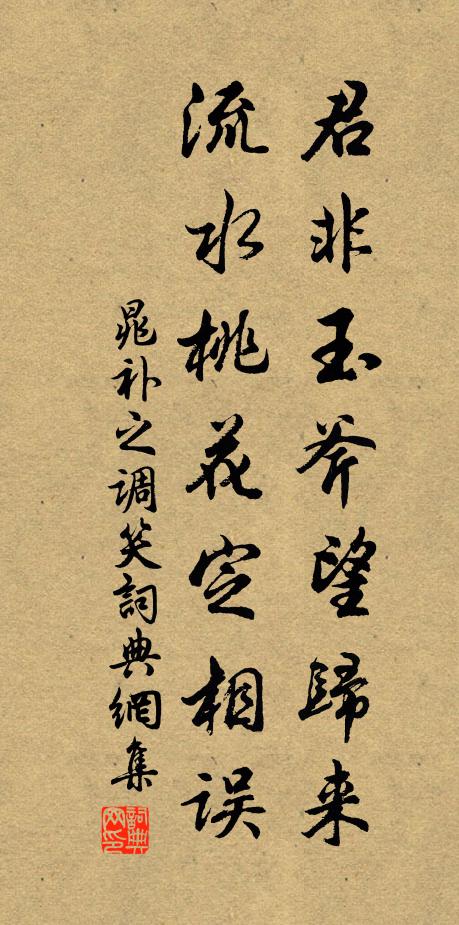 君非玉斧望歸来
流水桃花空相误
晁补之调笑詞典網集
詞典网印